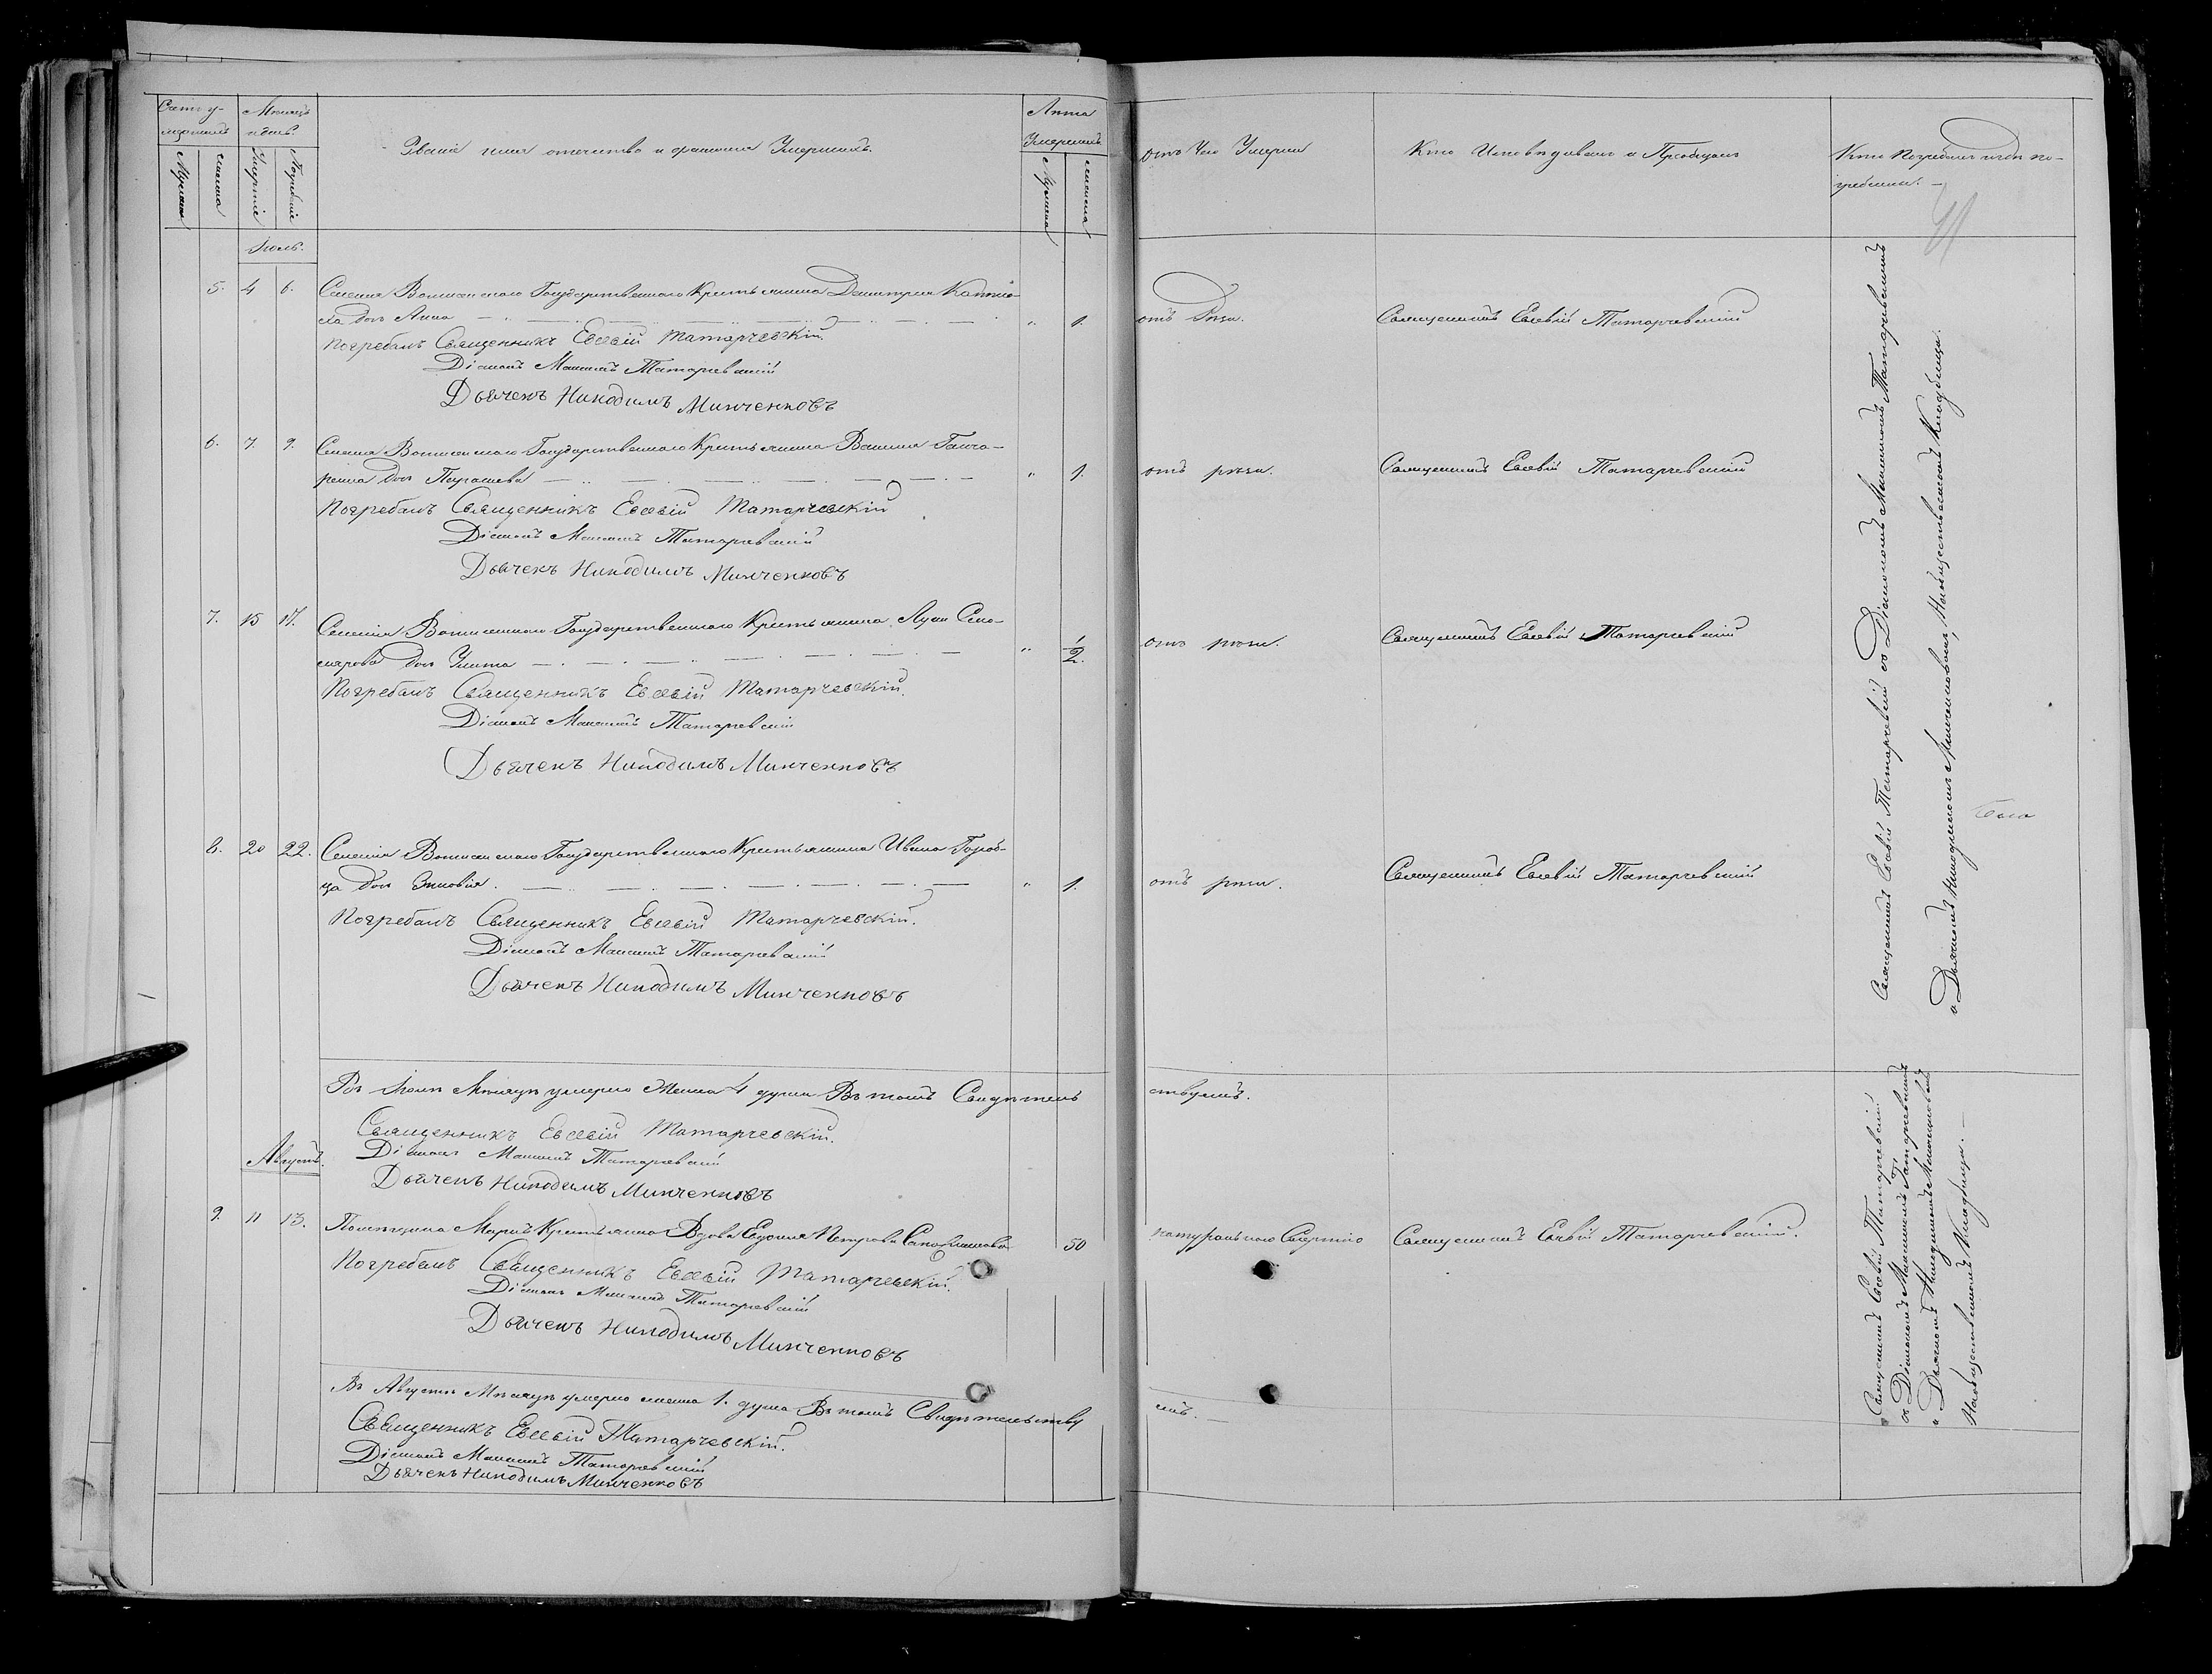 Счетъ у-
мершихъ
Мужеска
женска
Мѣсяцъ
и день.
Умертіе
Погребеніе
Званіе имя отчество и фамилія Умершихъ.
Лѣта
Умершихъ
Мужеска
женска
отъ Чего Умерли
Кто Исповѣдывалъ и Пріобщалъ
Кто Погребалъ и гдѣ по-
гребены.
Іюль.
5. 4 6. Селенія Государственнаго Крестьянина Димитрія
дочь Анна " 1. отъ Рези. Священникъ Евсевій Татарчевскій
Погребалъ Священникъ Евсевій Татарчевскій.
Діаконъ Максимъ Татарчевскій
Дьячекъ Никодимъ Минченковъ
6. 7. 9. Селенія Государственнаго Крестьянина Гонча-
ренка дочь " 1. отъ рези. Священникъ Евсевій Татарчевскій
Погребалъ Священникъ Евсевій Татарчевскій.
Діаконъ Максимъ Татарчевскій
Дьячекъ Никодимъ Минченковъ
7. 15 17. Селенія Государственнаго Крестьянина Луки
дочь " 1/2. отъ рези. Священникъ Евсевій Татарчевскій
Погребалъ Священникъ Евсевій Татарчевскій.
Діаконъ Максимъ Татарчевскій
Дьячекъ Никодимъ Минченковъ
8. 20 22. Селенія Государственнаго Крестьянина Ивана Гороб-
ца дочь Зиновія. " 1. отъ рези. Священникъ Евсевій Татарчевскій
Погребалъ Священникъ Евсевій Татарчевскій.
Діаконъ Максимъ Татарчевскій
Дьячекъ Никодимъ Минченковъ
Священникъ Евсевій Татарчевскій съ Діакономъ Максимомъ Татарчевскимъ
и Дьячкомъ Никодимомъ Минченковымъ, На общественномъ Кладбищѣ.
Въ Іюлѣ Мѣсяцѣ умерло Женска 4 души Въ томъ Свидѣтель ствуемъ.
Священникъ Евсевій Татарчевскій.
Діаконъ Максимъ Татарчевскій
Дьячекъ Никодимъ Минченковъ
Августъ.
9. 11 13. Помѣщика Крестьянка Вдова Евдокія Петрова 50 натуральною Смертію Священникъ Евсевій Татарчевскій.
Погребалъ Священникъ Евсевій Татарчевскій.
Діаконъ Максимъ Татарчевскій
Дьячекъ Никодимъ Минченковъ
Священникъ Евсевій Татарчевскій
съ Діакономъ Максимомъ Татарчевскимъ
и Дьячкомъ Никодимомъ Минченковымъ
На общественномъ Кладбищѣ.
Въ Августѣ Мѣсяцѣ умерло женска 1. душа Въ томъ Свидѣтельству емъ.
Священникъ Евсевій Татарчевскій.
Діаконъ Максимъ Татарчевскій
Дьячекъ Никодимъ Минченковъ